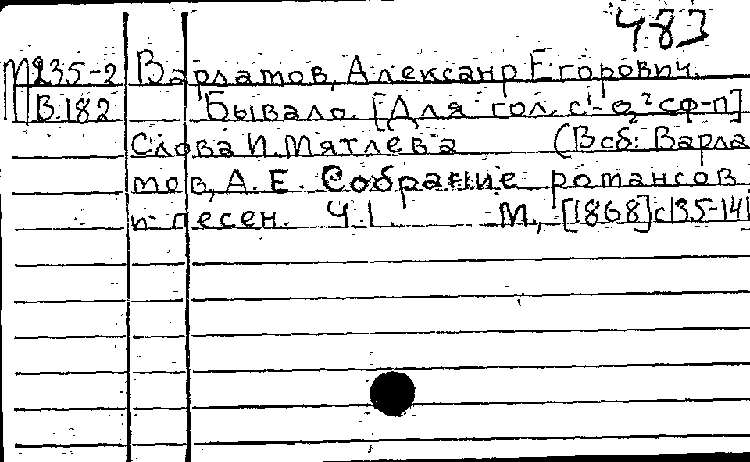 483
М 235-2 Варламов, Александр Егорович.
В.182 Бывало. [Для гол. с¹-g² с ф-п]
Слова И. Мятлева (В сб: Варла
мов, А. Е. Собрание романсов
и песен. Ч.1. М., [1868] с 135-141